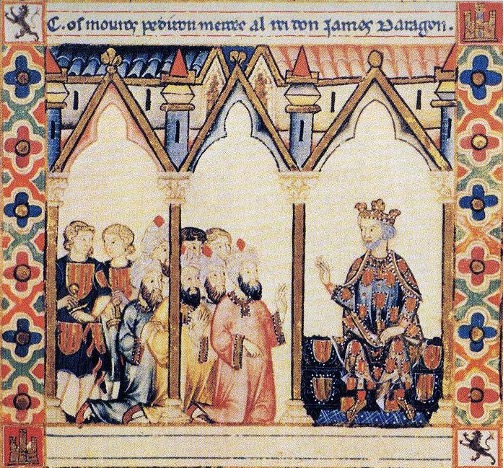 C. os mouros pediron mercee al rei don James Daragon.